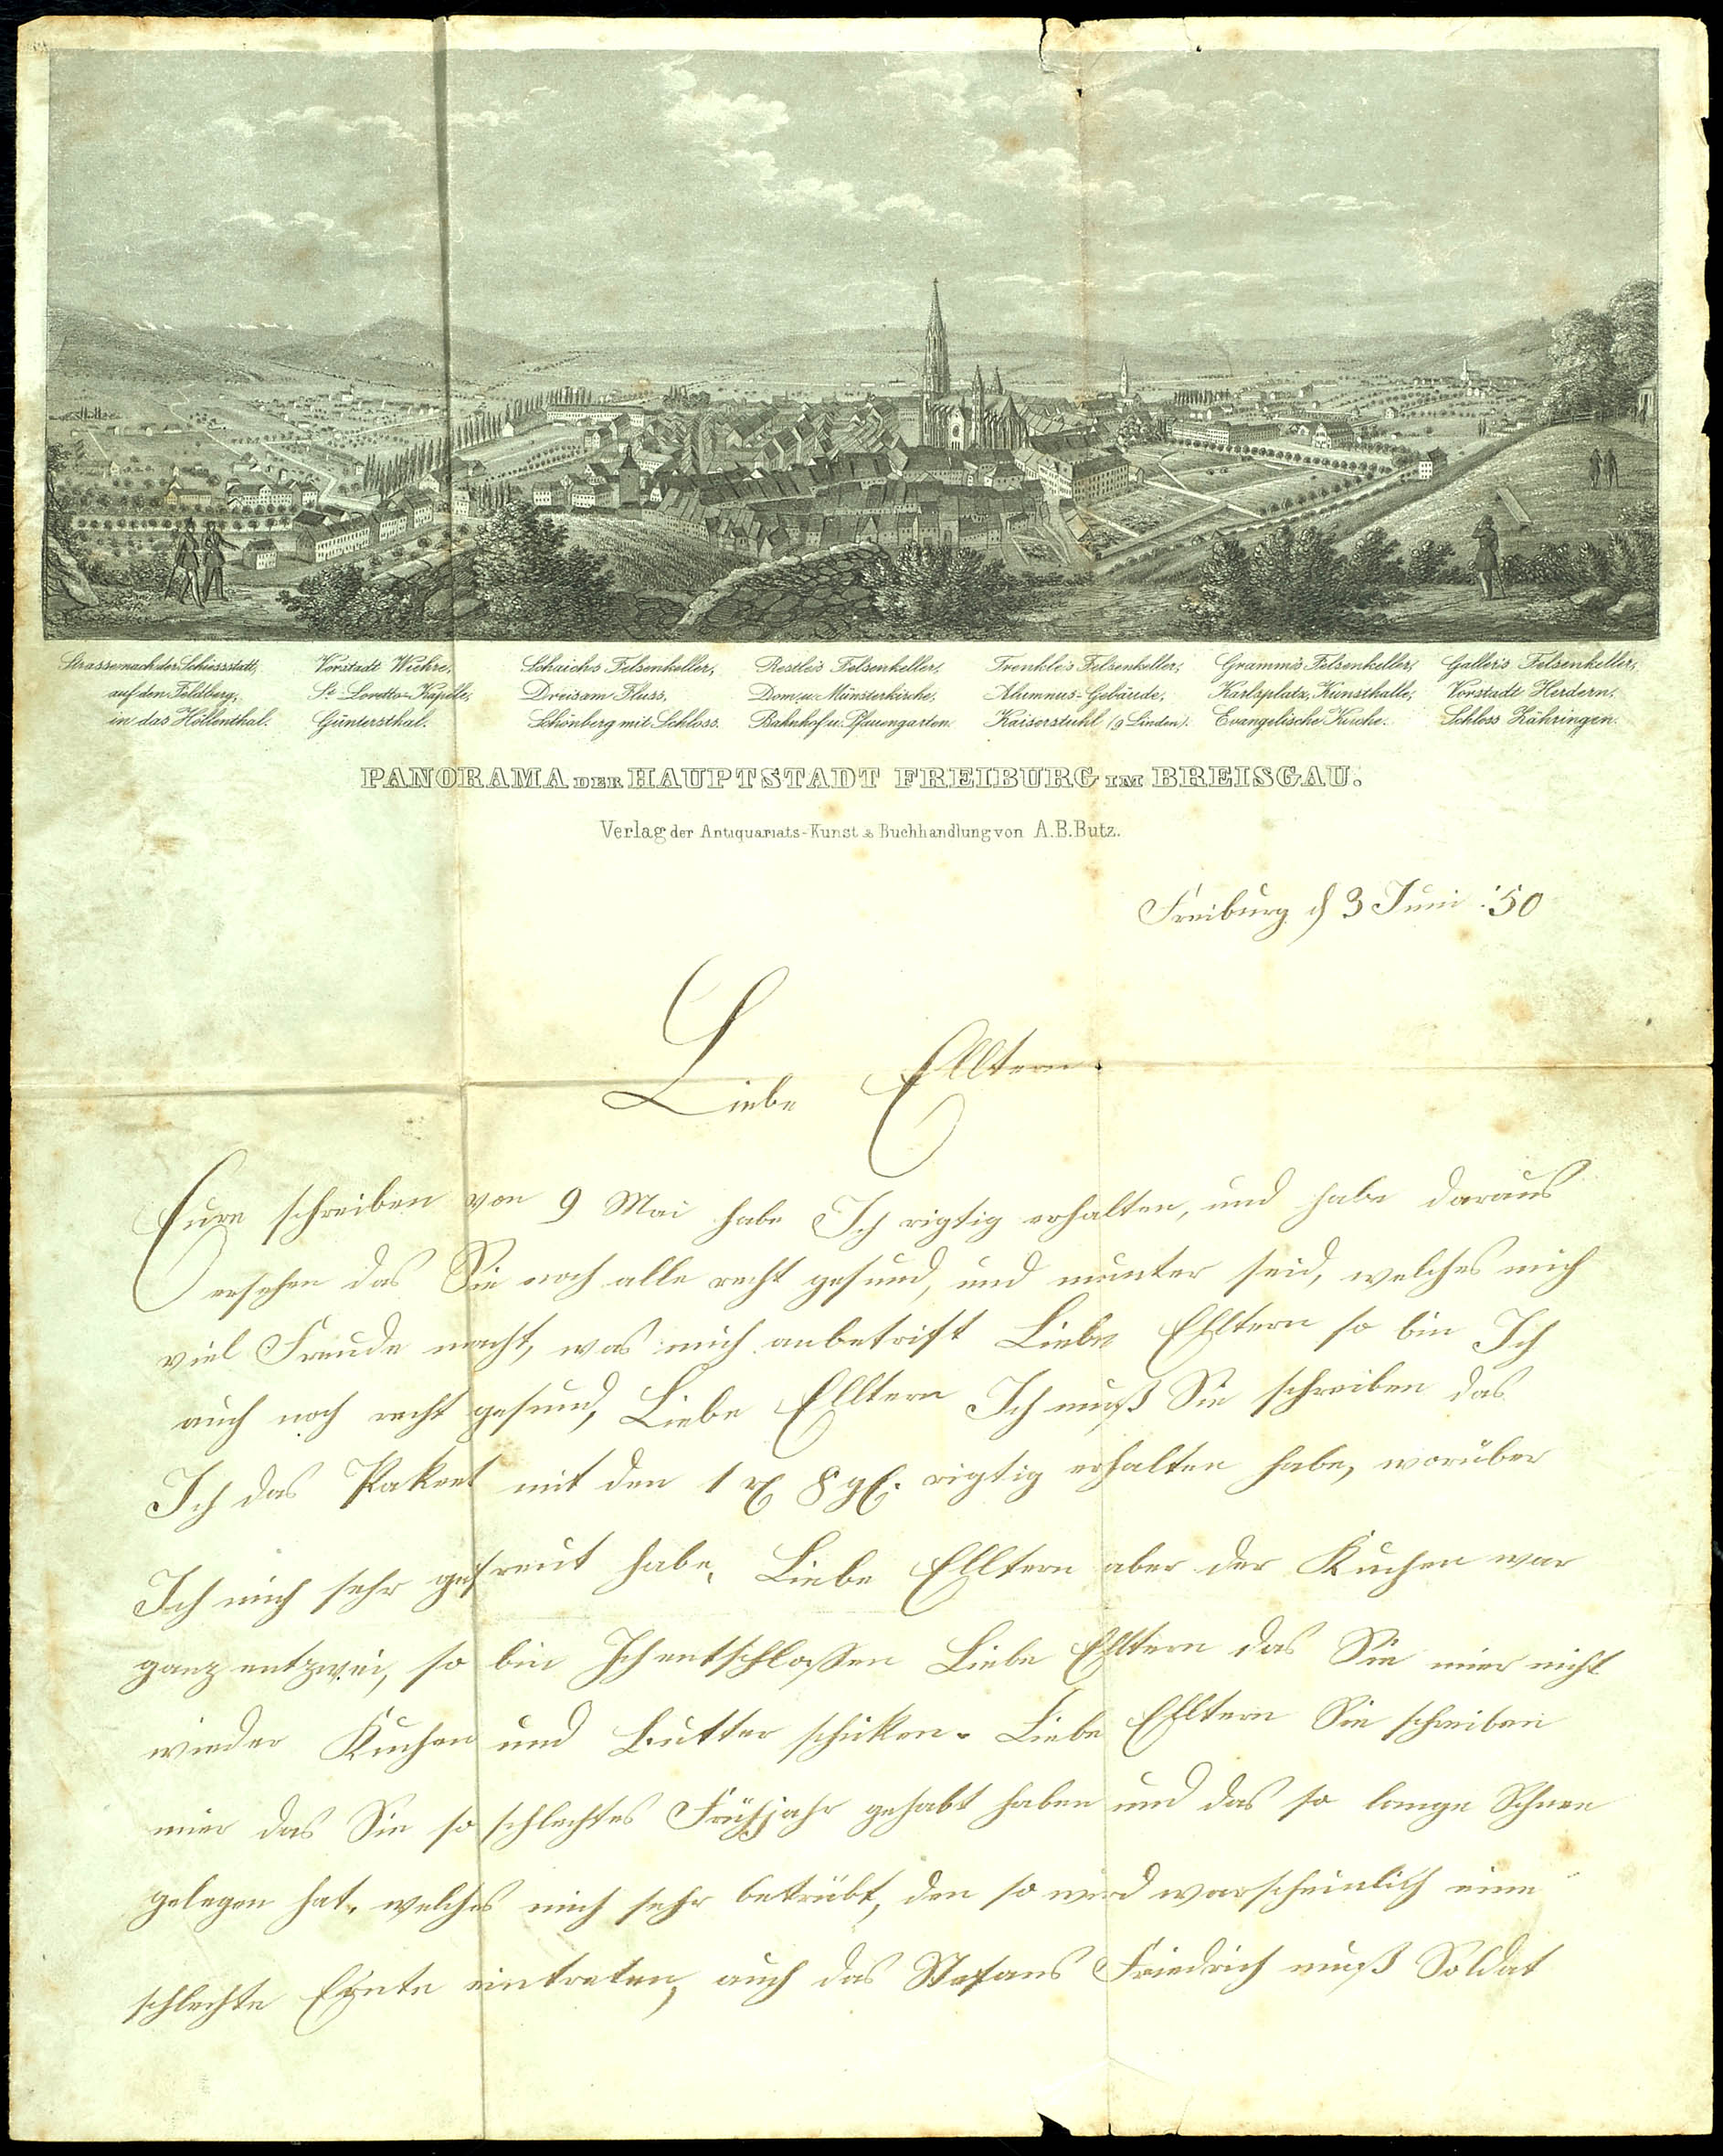 Strasse nach der Schiessstatt, Vorstadt Wiehre, Schaichs Felsenkeller, Restle's Felsenkeller, Trenkle's Felsenkeller, Gramm's Felsenkeller, Galler's Felsenkeller,
auf den Feldberg, St. Loretto-Kapelle, Dreisam Fluss, Dom, u. Münsterkirche, Alumnus-Gebäude, Karlsplatz, Kunsthalle, Vorstadt Herdern,
in das Höllenthal. Güntersthal. Schönberg mit Schloss. Bahnhof u. Pfauengarten. Kaiserstuhl (9 Linden). Evangelische Kirche. Schloss Zähringen.
PANORAMA DER HAUPTSTADT FREIBURG IM BREISGAU.
Verlag der Antiquariats-Kunst & Buchhandlung von A.B.Butz.
Freiburg d 3 Juni '50
Liebe Elltern.
Eure schreiben von 9 Mai habe Ich rigtig erhalten, und habe daraus
ersehen das Sie noch alle recht gesund, und munter seid, welches mich
viel Freude macht, was mich anbetrift Liebe Elltern so bin Ich
auch noch recht gesund, Liebe Elltern Ich muß Sie schreiben das
Ich das Pakeet mit den 1 rl 8 gl. rigtig erhalten habe, worüber
Ich mich sehr gefreut habe, Liebe Elltern aber der Kuchen war
ganz entzwei, so bin Ich entschloßen Liebe Elltern das Sie mier nicht
wieder Kuchen und Butter schikken. Liebe Elltern Sie schreiben
mier das Sie so schlechtes Frühjahr gehabt haben und das so lange Schnee
gelegen hat, welches mich sehr betrübt, den so wird warscheinlich eine
schlechte Ernte eintreten, auch das Stefans Friedrich muß Soldat